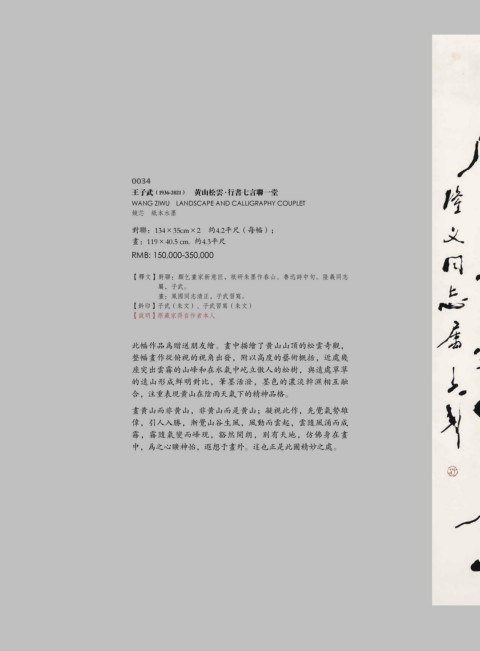 0034
王子武（1936-2021） 黃山松雲·行書七言聯一堂
WANG ZIWU LANDSCAPE AND CALLIGRAPHY COUPLET
鏡芯 紙本水墨
對聯：134×35cm×2 約4.2平尺（每幅）；
畫：119×40.5 cm. 約4.3平尺
RMB: 150.000-350.000
【釋文】對聯：顏色畫家斷覓狂，硯研朱墨作春山。魯迅詩中句。隆義同志
屬，子武。
畫：鳳國同志清正，子武寫。
【鈐印】子武（朱文）、子武寫（朱文）
【說明】原藏家得自作者本人
此幅作品爲贈送朋友繪。畫中描繪了黃山山頂的松雲奇觀，
整幅畫作從俯視的視角出發，附以高度的藝術概括，近處幾
座突出雲霧的山峰和在水氣中屹立傲人的松樹，與遠處草草
的遠山形成鮮明對比，筆墨活潑，墨色的濃淡幹濕相互融
合，注重表現黃山在陰雨天氣下的精神品格。
畫黃山而非黃山，非黃山而是黃山；凝視此作，先覺氣勢雄
偉，引人入勝，漸覺山谷生風，風動而雲起，雲隨風涌而成
霧，霧隨氣變而峰現，豁然開朗，別有天地，仿佛身在畫
中，爲之心曠神怡，遐想于畫外。這也正是此圖精妙之處。
隆义同志属子武